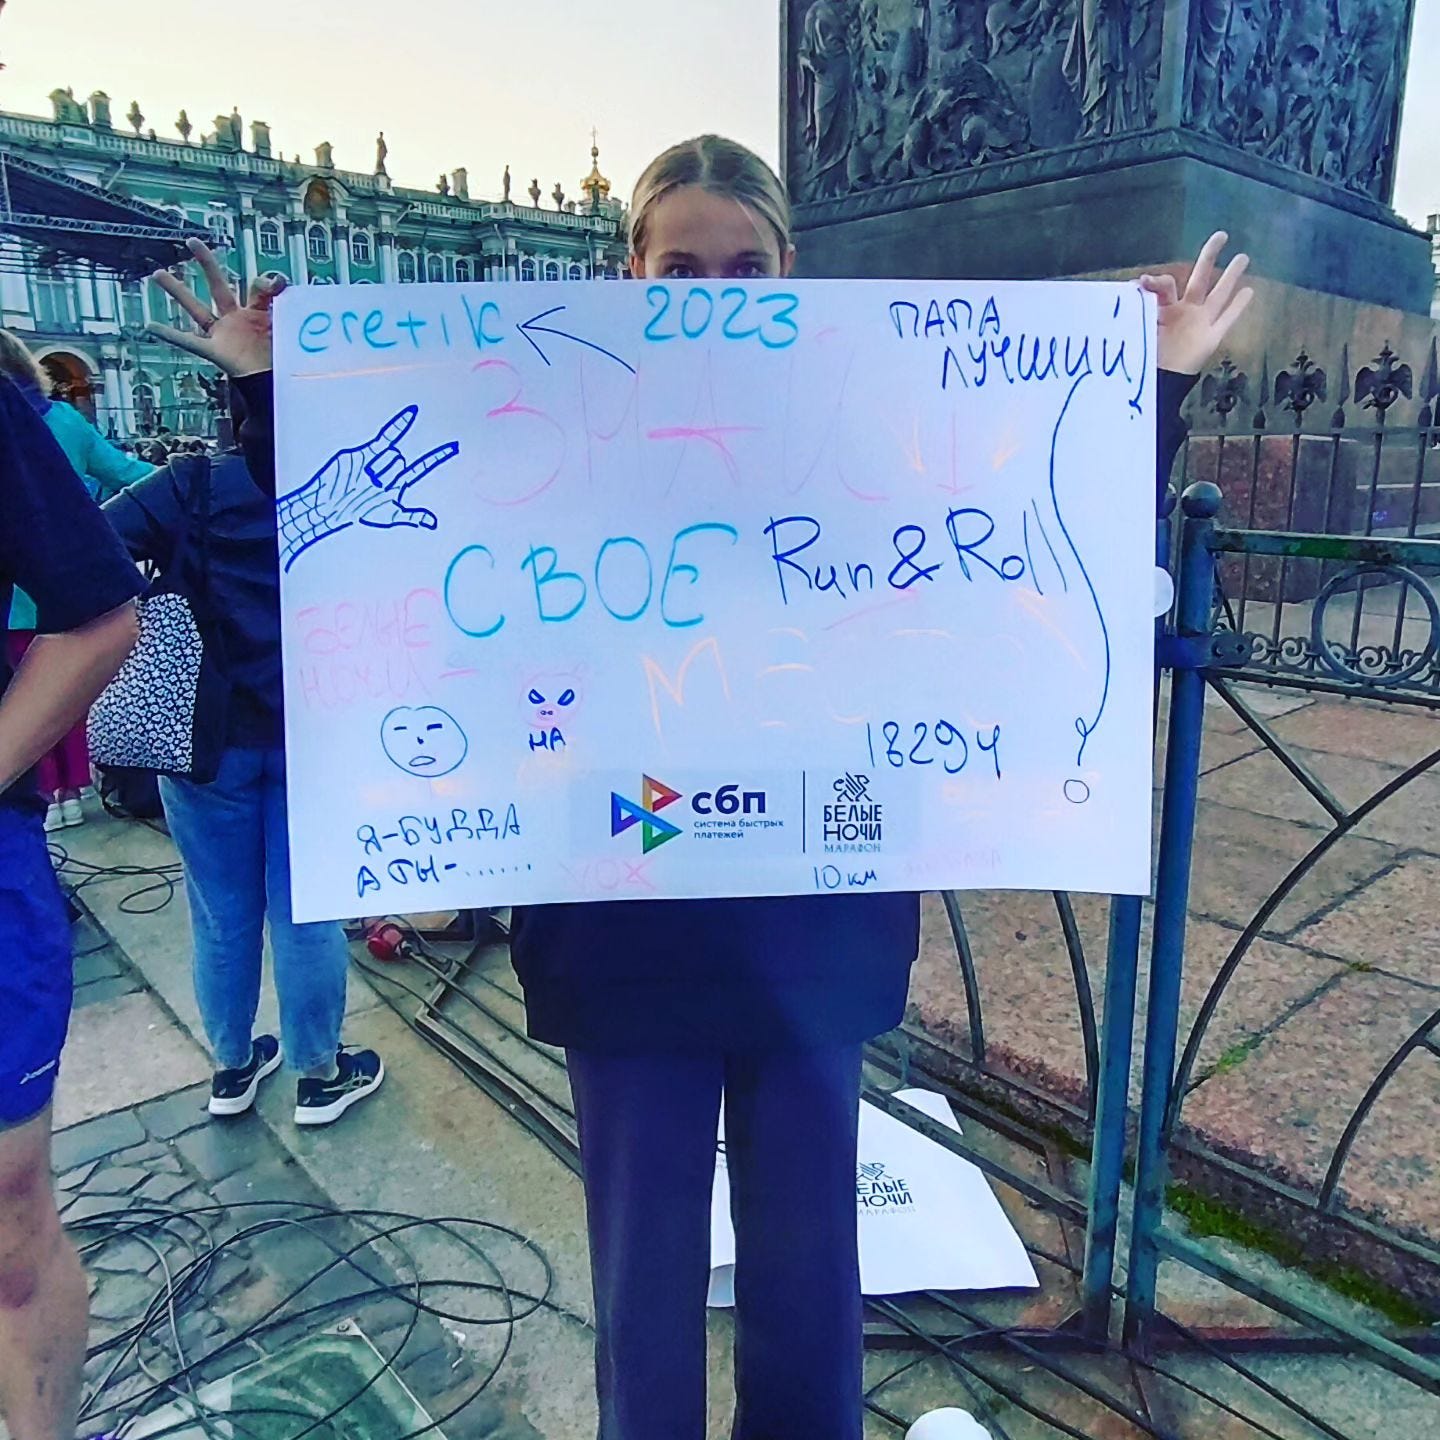 eretik
2023
ПАПА
ЛУЧШИЙ
ЗНАЙ
СВОЕ
Run & Roll
БЕЛЫЕ
НОЧИ -
МЕСТО
НА
18294
Я-БУДДА
А ТЫ-......
XOX
сбп
система быстрых
платежей
БЕЛЫЕ
НОЧИ
МАРАФОН
10 км
БЕЛЫЕ
НОЧИ
МАРАФОН